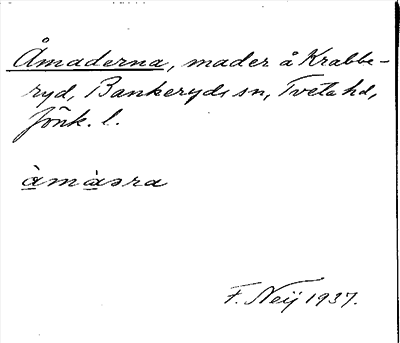 Åmaderna, mader å Krabbe-
ryd, Bankeryds sn, Tveta hd,
Jönk. l.
åmàsra
F. Neij 1937.